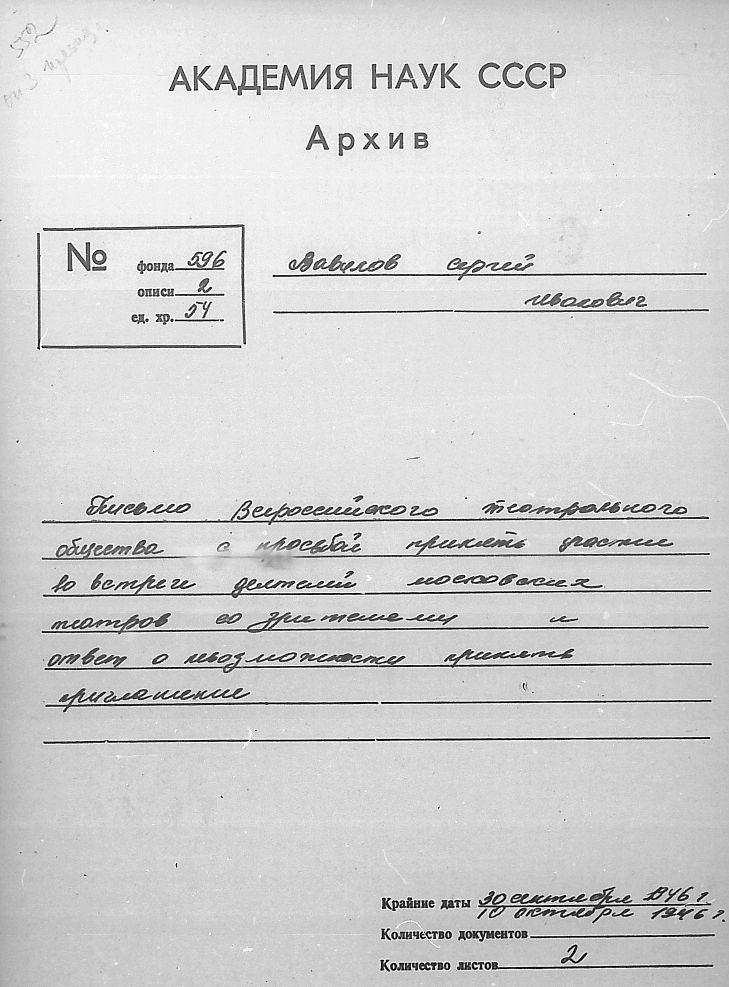 552
АКАДЕМИЯ НАУК СССР
Архив
№ фонда 596
описи 2
ед. хр. 54
Вавилов Сергей
Иванович
Письмо Всероссийского театрального
общества с просьбой принять участие
во встрече деятелей московских
театров со зрителями и
ответ о невозможности принять
приглашение
Крайние даты 30 сентября 1946 г.
10 октября 1946 г.
Количество документов
Количество листов 2